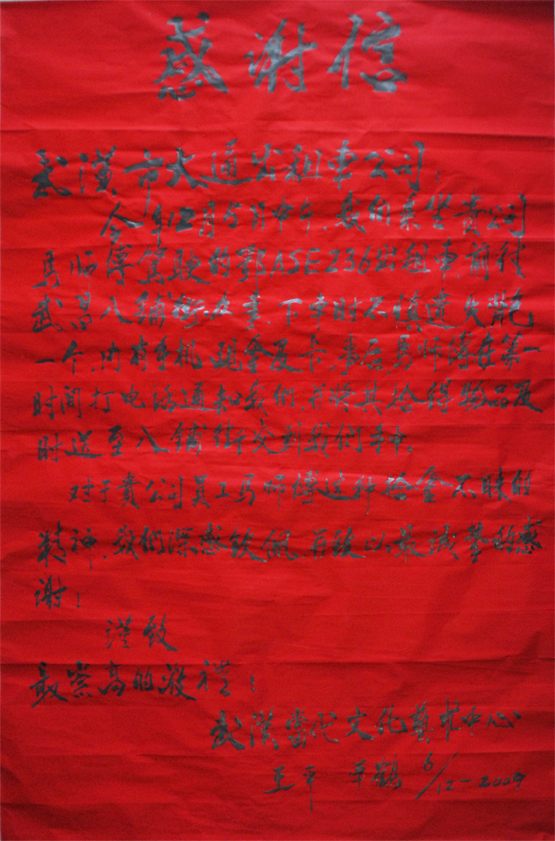 感谢信
武漢市大通出租車公司:
今年12月5日中午,我们乘坐貴公司
马师傅驾驶的鄂ASE236出租車前往
武昌八铺街办事,下車时不慎遗失挎包
一个,内有手机、现金及卡,事后马师傅在第一
时间打电话通知我们,并将其拾得物品及
时送至八铺街交到我们手中。
对于貴公司员工马师傅这种拾金不昧的
精神,我們深感钦佩,并致以最诚挚的感
谢!
谨致
最崇高的敬禮!
武漢當代文化藝术中心
王平 平鶴 6/12-2009